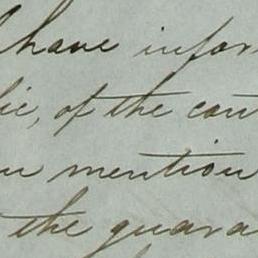 have infor
lic, of the con
mention
the guara